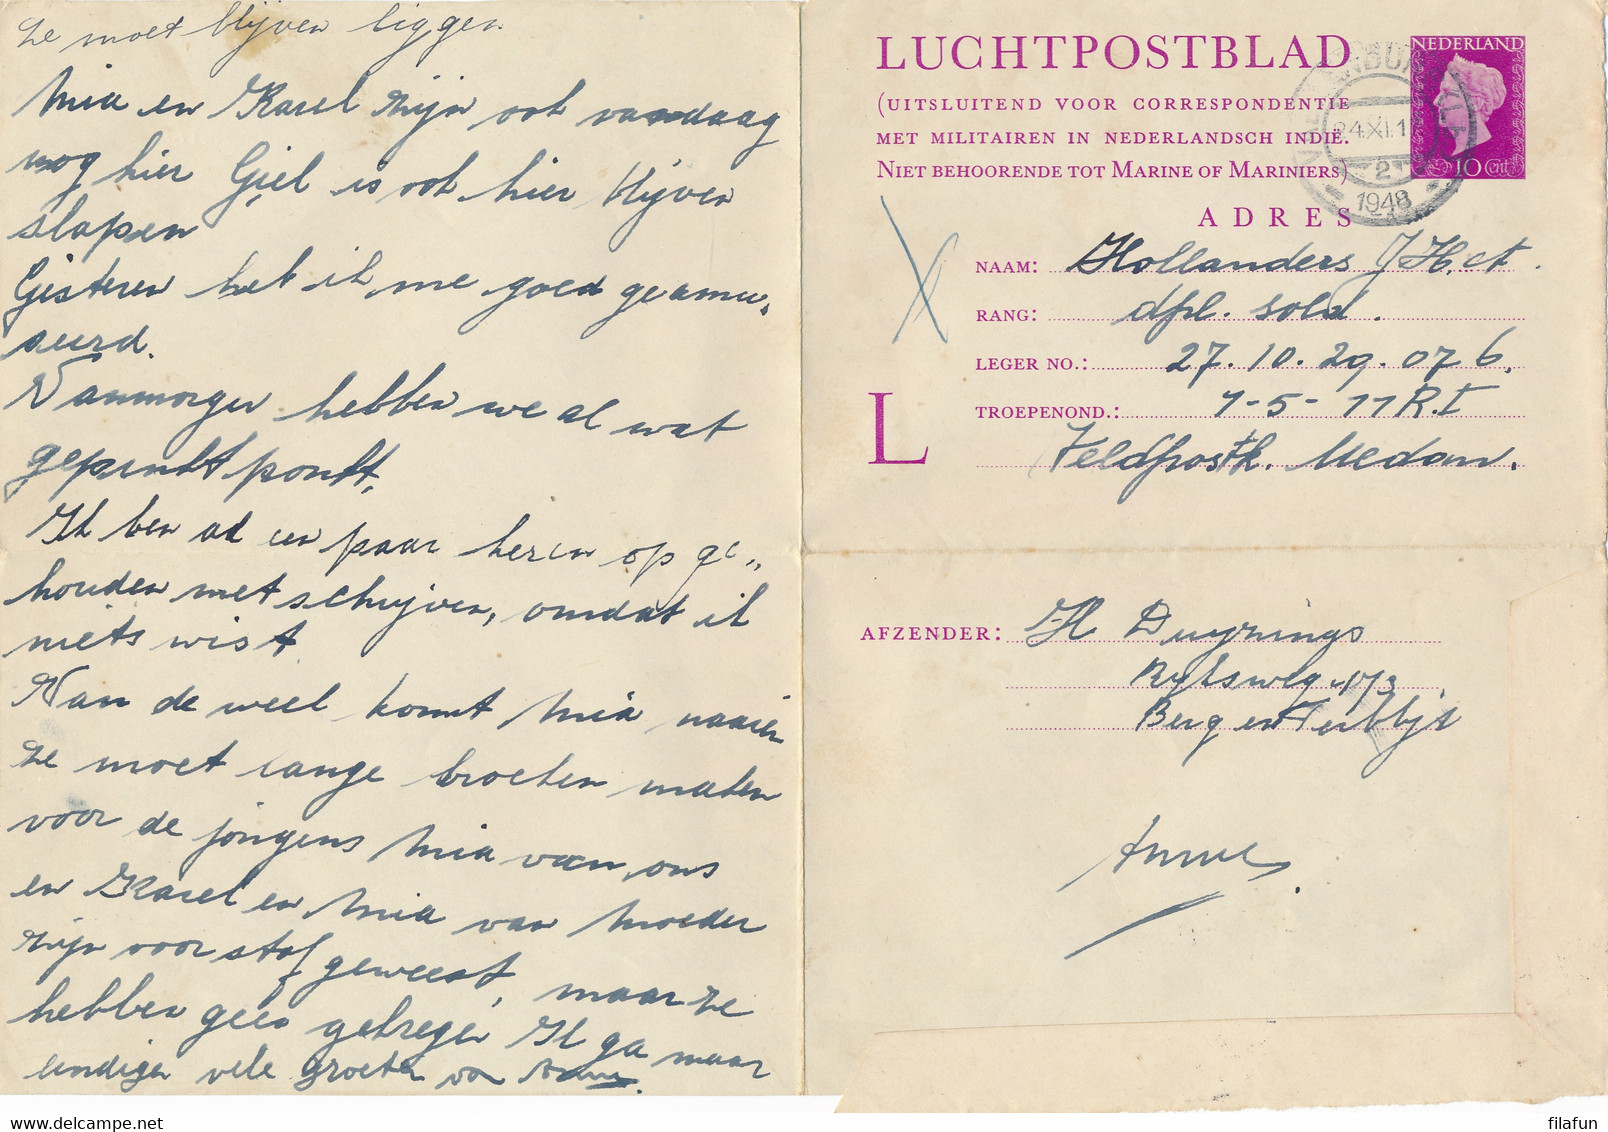 ze moet blijven liggen
Mia en Karel zijn ook vandaag
nog hier Giel is ook hier blijven
slapen
Gisteren heb ik me goed geamu„
seerd.
Vanmorgen hebben we al wat
gepraktponkt,
Ik ben al een paar keren op ge„
houden met schrijven, omdat ik
niets wist
Van de week komt Mia naaien
ze moet lange broeken maken
voor de jongens Mia van ons
en Karel en Mia van Moeder
zijn voor stof geweest, maar ze
hebben geen gekregen Ik ga maar
eindigen vele groeten van Anna.
LUCHTPOSTBLAD
(UITSLUITEND VOOR CORRESPONDENTIE
MET MILITAIREN IN NEDERLANDSCH INDIË.
NIET BEHOORENDE TOT MARINE OF MARINIERS)
NEDERLAND
10 Cent
24.XI.1
2
1948
ADRES
NAAM: Hollanders J.H.A.
RANG: dpl. sold.
LEGER NO.: 27.10.29.076.
L
TROEPENOND.: 1-5-11 R.I
Veldpostk. Medan.
AFZENDER: H Duyzings
Ryksweg 173
Berg en Terblijt
filafun